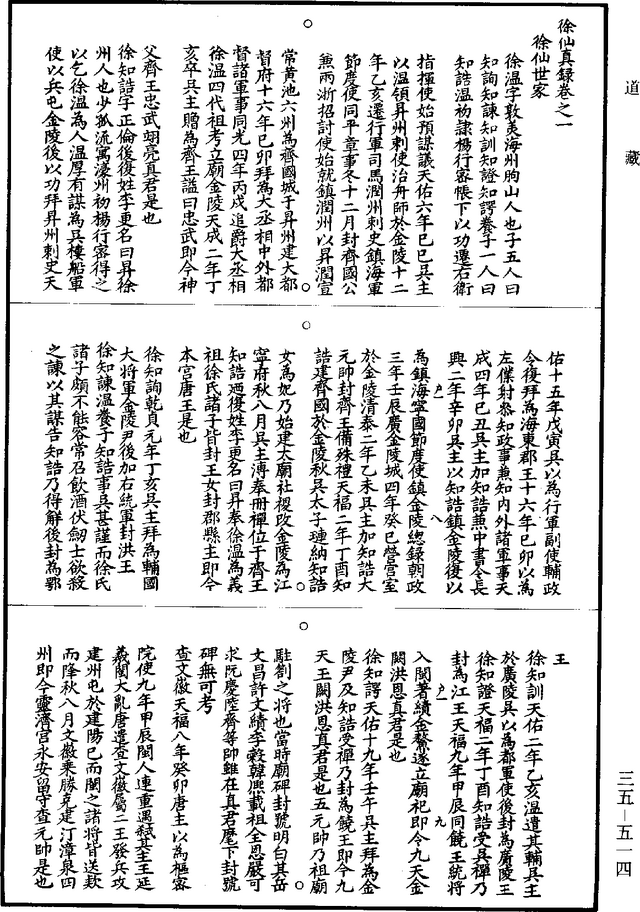 道藏
徐仙真錄卷之一
徐仙世家
徐溫字敦美海州朐山人也子五人曰
知詢知諫知訓知證知諤養子一人曰
知誥溫初隸楊行密帳下以功遷右衛
指揮使始預謀議天佑六年己巳吳主
以溫領昇州刺使治舟師於金陵十二
年乙亥遷行軍司馬潤州刺史鎮海軍
節度使同平章事冬十二月封齊國公
兼兩浙招討使始就鎮潤州以昇潤宣
常黃池六州為齊國城于昇州建大都
督府十六年己卯拜為大丞相中外都
督諸軍事同光四年丙戌追爵大丞相
徐溫四代祖考立廟金陵天成二年丁
亥卒吳主贈為齊王謚曰忠武即今神
父齊王忠武翊亮真君是也
徐知誥字正倫後復姓李更名曰昇徐
州人也少孤流寓濠州初楊行密得之
以乞徐溫為人溫厚有謀為吳樓船軍
使以兵屯金陵後以功拜昇州刺史天
佑十五年戊寅吳以為行軍副使輔政
今復拜為海東郡王十六年己卯以為
左僕射叅知政事兼知內外諸軍事天
成四年己丑吳主加知誥兼中書令長
興二年辛卯吳主以知誥鎮金陵復以
為鎮海寧國節度使鎮金陵總錄朝政
三年壬辰廣金陵城四年癸巳營宮室
於金陵清泰二年乙未吳主加知誥大
元帥封齊王備殊禮天福二年丁酉知
誥建齊國於金陵秋吳太子璉納知誥
女為妃乃始建太廟社稷改金陵為江
寧府秋八月吳主溥奉冊禪位于齊王
知誥迺復姓李更名曰昇奉徐溫為義
祖徐氏諸子皆封王女封郡縣主即今
本宮唐王是也
徐知詢乾貞元年丁亥吳主拜為輔國
大將軍金陵尹後加右統軍封洪王
徐知諫溫養子知誥事吳甚謹而徐氏
諸子頗不能容常召飲酒伏劒士欲殺
之諫以其謀告知誥乃得解後封為鄂
王
徐知訓天佑二年乙亥溫遣其輔吳主
於廣陵吳以為都軍使後封為廣陵王
徐知證天福二年丁酉知誥受吳禪乃
封為江王天福九年甲辰同饒王統將
入閩著績金鰲遂立廟祀即今九天金
闕洪恩真君是也
徐知諤天佑十九年壬午吳主拜為金
陵尹及知誥受禪乃封為饒王即今九
天玉闕洪恩真君是也五元帥乃祖廟
駐劄之將也當時廟碑封號明白其岳
文昌許文績李毅韓興載祖全恩嚴可
求阮慶陸齊等帥雖在真君麾下封號
碑無可考
查文徽天福八年癸卯唐主以為樞密
院使九年甲辰閩人連重遇弒其主王延
羲閩大亂唐遣查文徽屬二王發兵攻
建州屯於建陽已而閩之諸將皆送款
而降秋八月文徽乘勝克建汀漳泉四
州即今靈濟宮永安留守查元帥是也
三五—五一四